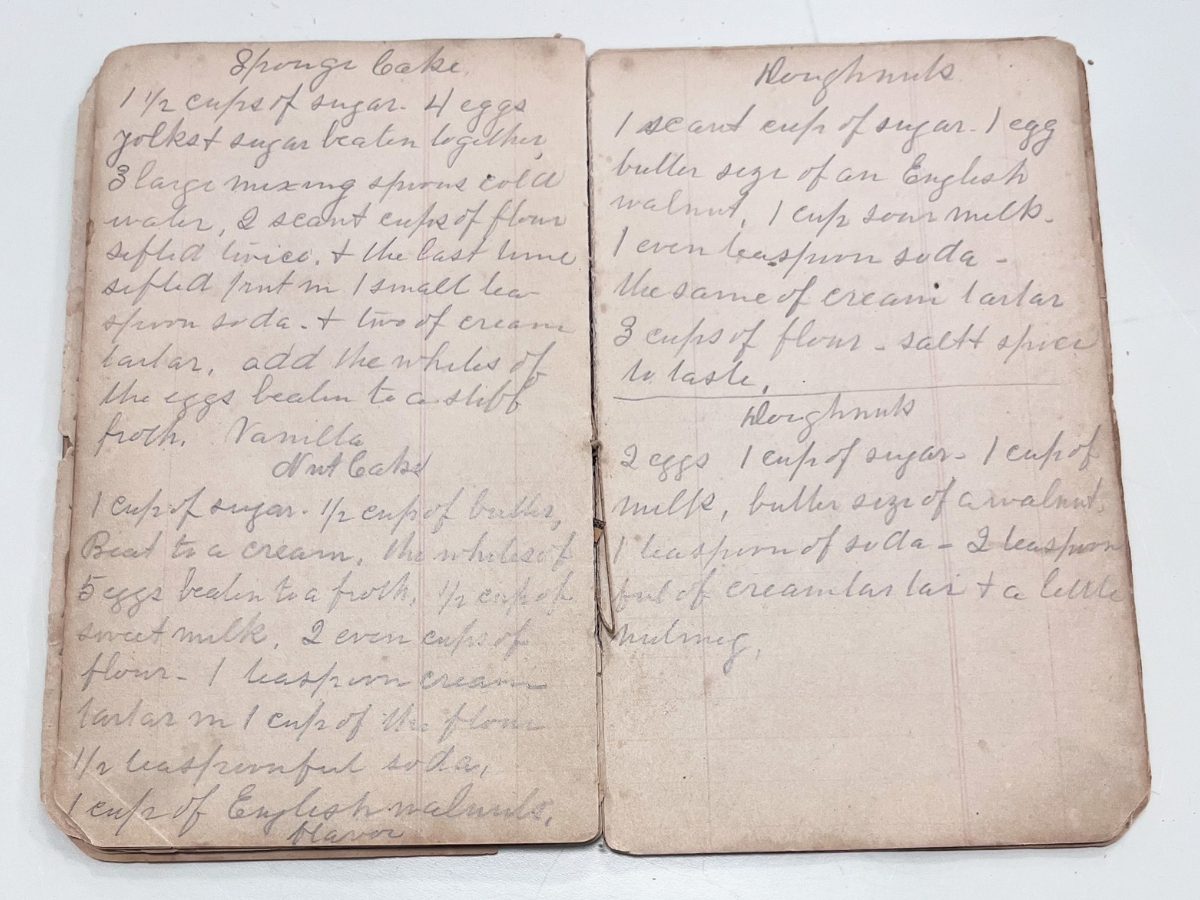 Sponge Cake
1 1/2 cups of sugar - 4 eggs
yolks & sugar beaten together
3 large mixing spoons cold
water, 2 scant cups of flour
sifted twice, & the last time
sifted put in 1 small tea-
spoon soda - & two of cream
tartar, add the whites of
the eggs beaten to a stiff
froth, Vanilla
Nut Cake
1 cup of sugar - 1/2 cup of butter,
Beat to a cream, the whites of
5 eggs beaten to a froth, 1/2 cup of
sweet milk, 2 even cups of
flour - 1 teaspoon cream
tartar in 1 cup of the flour
1/2 teaspoonful soda,
1 cup of English walnuts,
flavor
Doughnuts
1 scant cup of sugar - 1 egg
butter size of an English
walnut, 1 cup sour milk -
1 even teaspoon soda -
the same of cream tartar
3 cups of flour - salt & spice
to taste,
Doughnuts
2 eggs 1 cup of sugar - 1 cup of
milk, butter size of a walnut,
1 teaspoon of soda - 2 teaspoon
ful of cream tartar & a little
nutmeg,